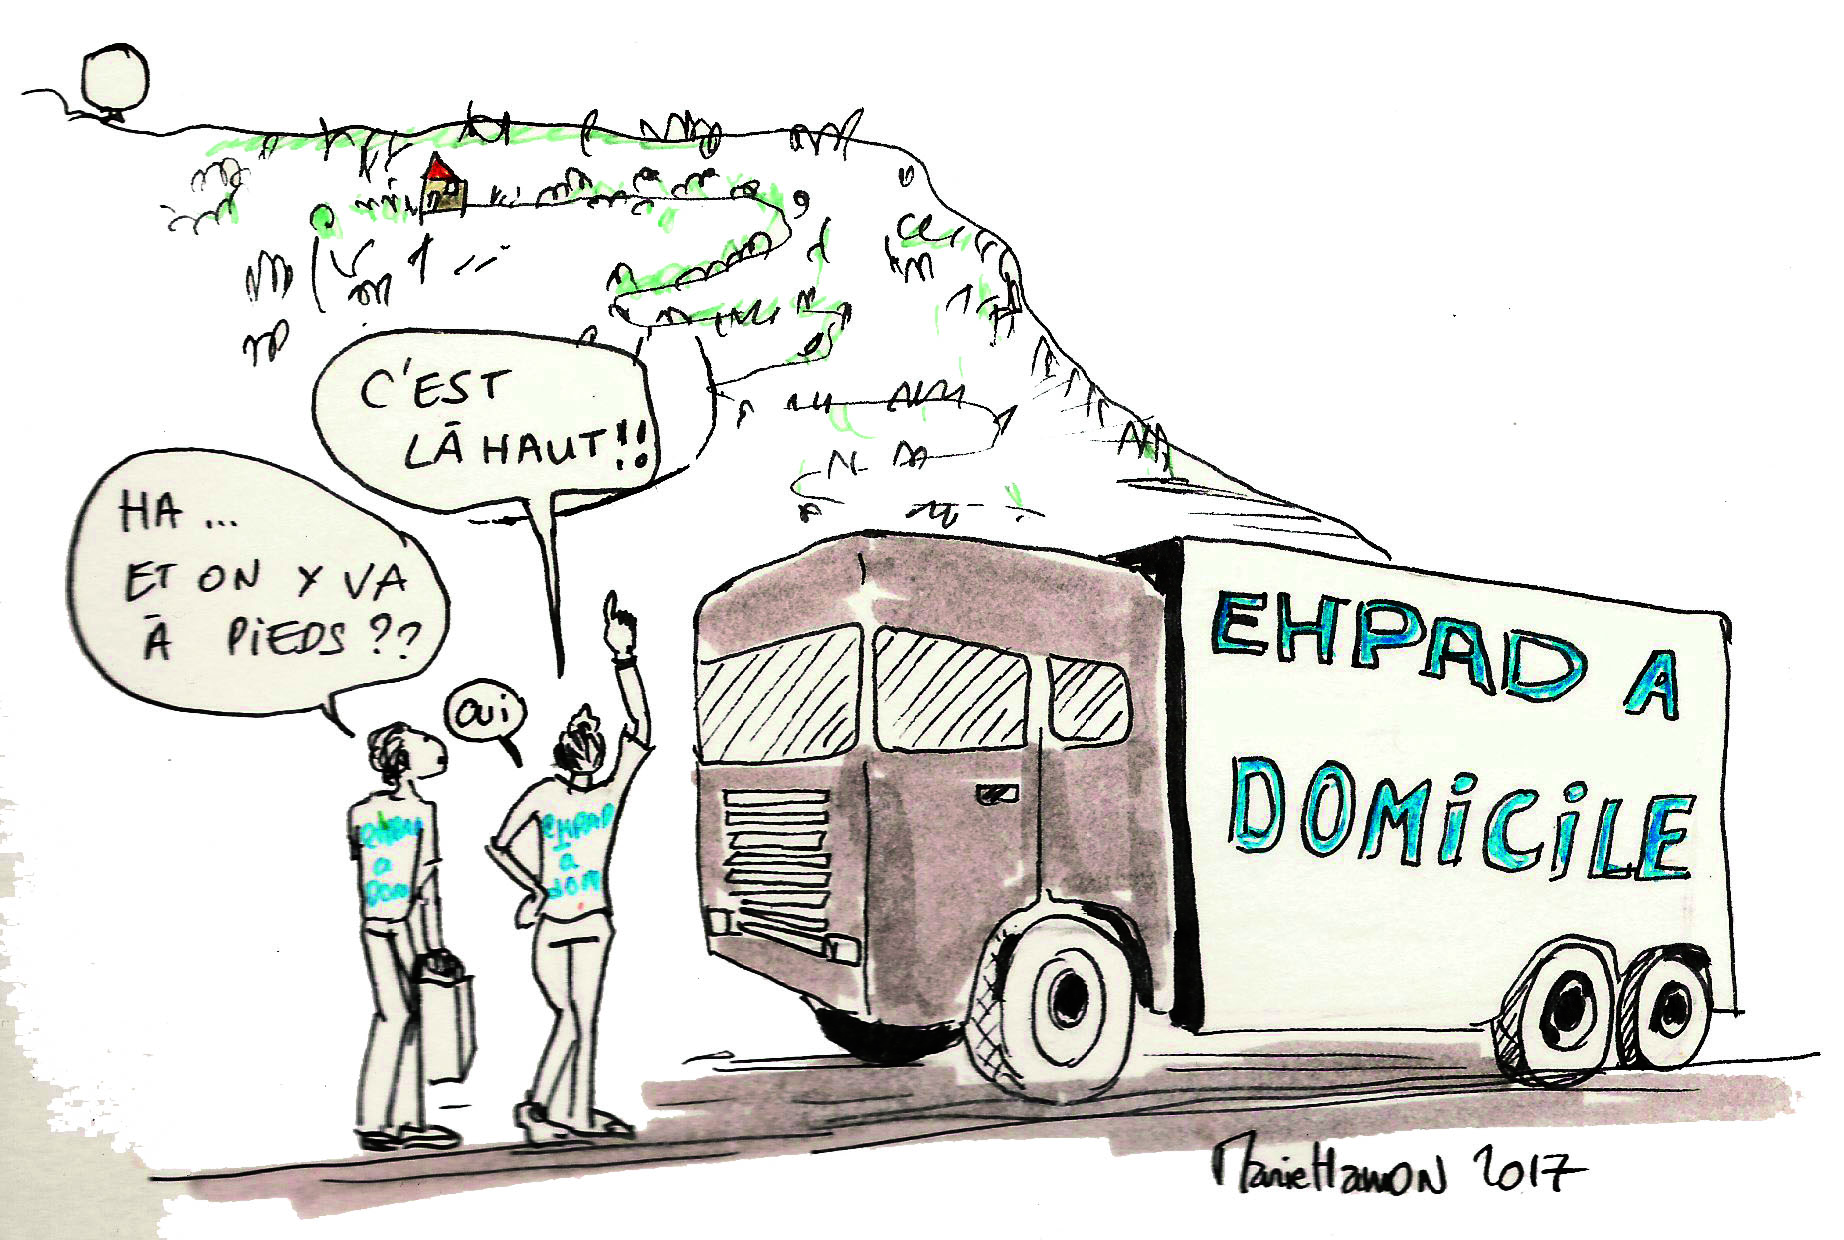 C'EST
LÀ HAUT!!
HA...
ET ON Y VA
À PIEDS??
OUi
EHPAD A
DOMiCiLE
EHPAD
a
Dom
EHPAD
a
DOM
MarieHamON 2017